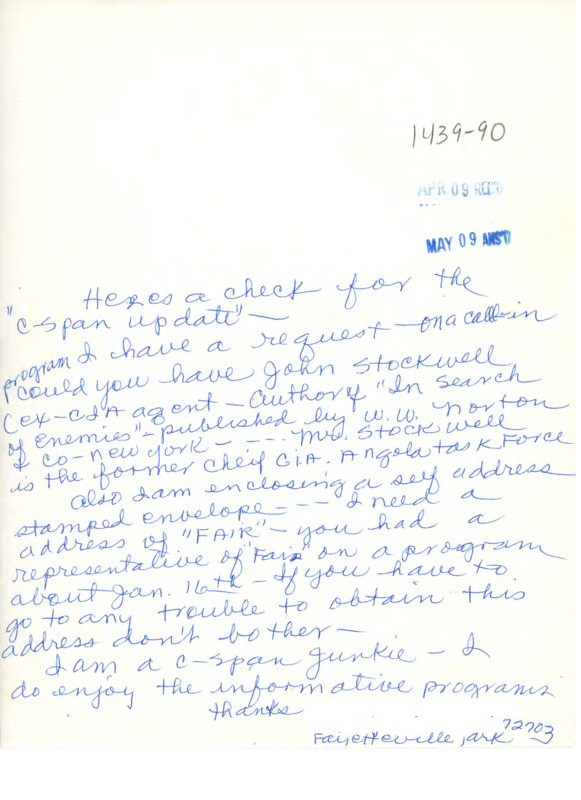 1439-90
APR 09 REC'D
MAY 09 ANS'D
Heres a check for the
"C-Span update" —
program I have a request — on a call-in
could you have John Stockwell
(ex-CIA agent — Author of "In Search
of Enemies" - published by W.W. Norton
& Co - New York - --- Mr. Stockwell
is the former Cheif CIA. Angola task Force
also I am enclosing a self address
stamped envelope - --- I need a
address of "FAIR" - you had a
representative of "Fair" on a program
about Jan. 16th - If you have to
go to any trouble to obtain this
address don't bother —
I am a C-Span junkie - I
do enjoy the informative programs
thanks
Fayetteville, Ark 72703